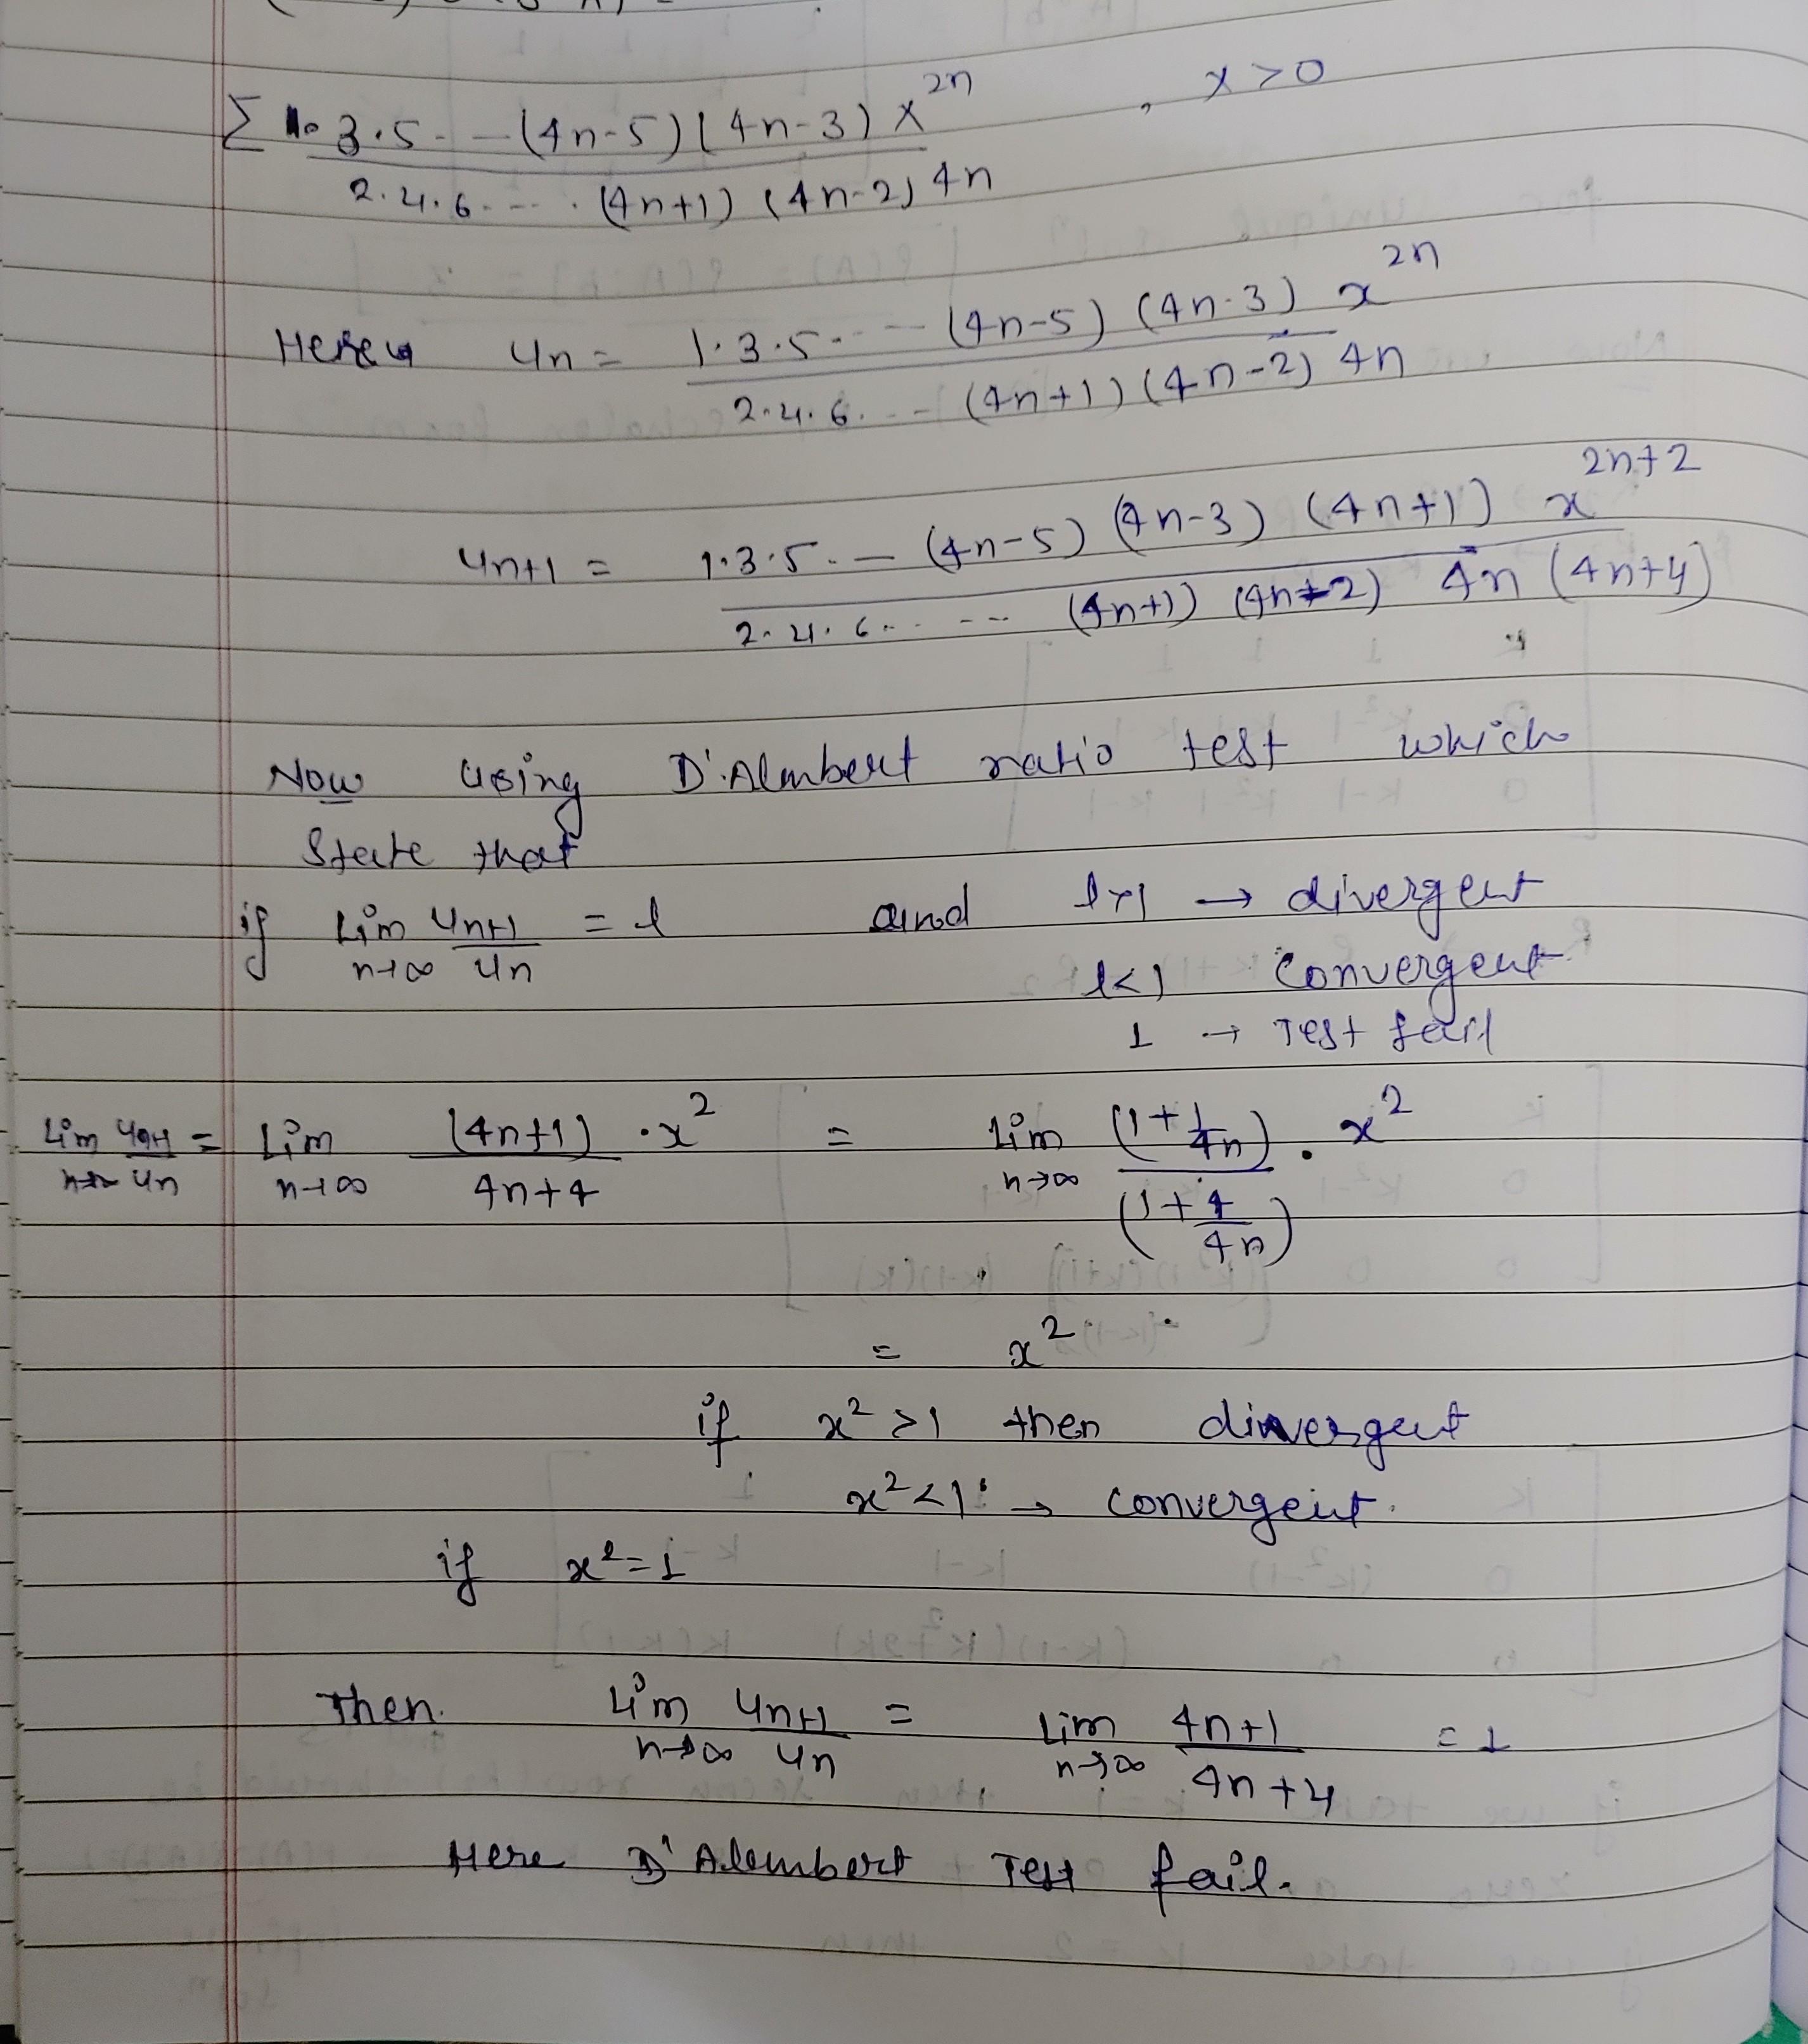 Σ 1. 3.5 - - (4n-5) (4n-3) x^2n , x > 0
2.4.6. - - . (4n+1) (4n-2) 4n
Here Un = 1.3.5. - - - (4n-5) (4n-3) x^2n
2.4.6. - - (4n+1) (4n-2) 4n
Un+1 = 1.3.5. - (4n-5) (4n-3) (4n+1) x^2n+2
2.4.6. . . - - (4n+1) (4n+2) 4n (4n+4)
Now using D'Almbert ratio test which
State that
if Lim Un+1 = l and l>1 → divergent
n→∞ Un l<1 Convergent
1 → Test fail
Lim Un+1 = Lim (4n+1) . x^2 = Lim (1 + 1/4n) . x^2
n→∞ Un n→∞ 4n+4 n→∞ (1 + 4/4n)
= x^2
if x^2 > 1 then divergent
x^2 < 1 → convergent.
if x^2 = 1
Then. Lim Un+1 = Lim 4n+1 = 1
n→∞ Un n→∞ 4n+4
Here D'Alembert Test fail.